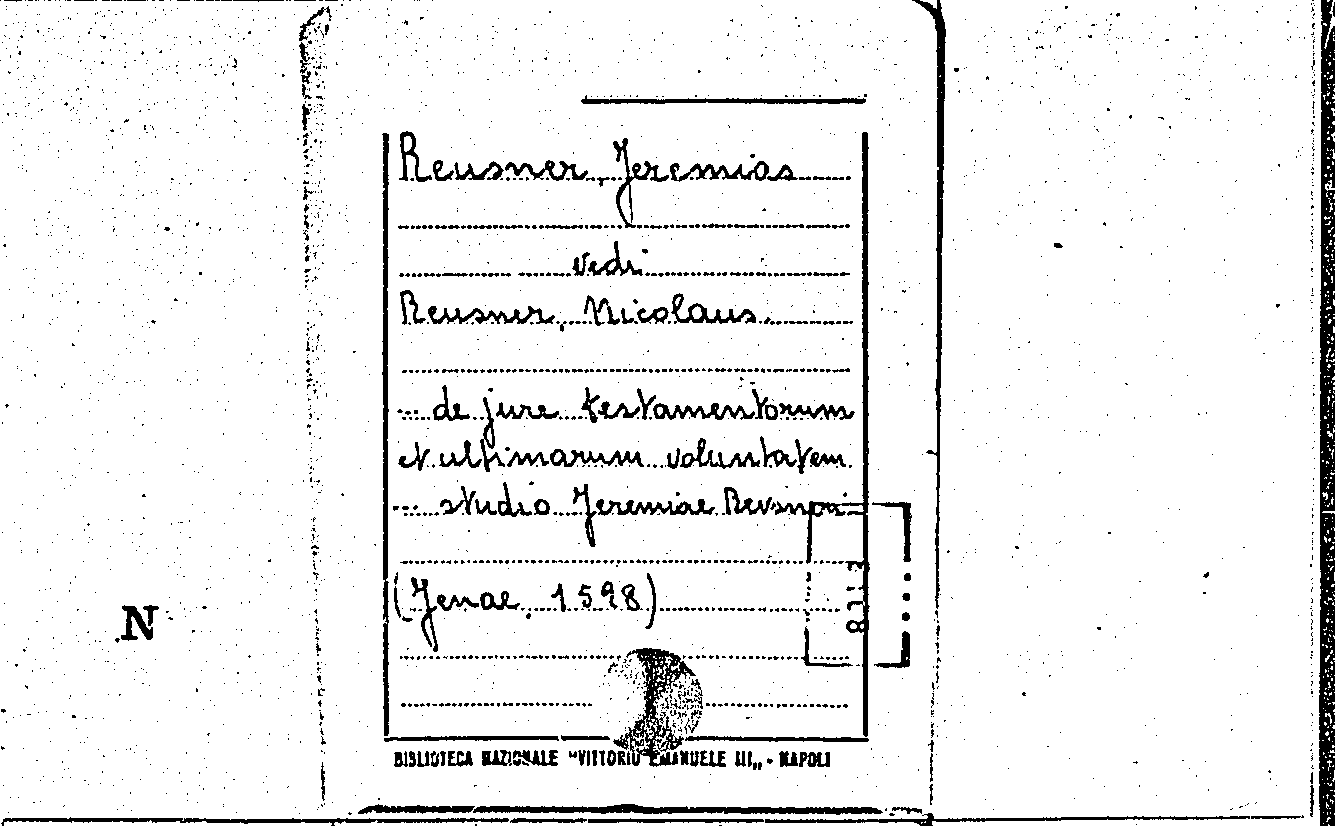 Reusner, Jeremias
vedi
Reusner, Nicolaus.
... de jure testamentorum
et ultimarum voluntatem
... studio Jeremiae Reusneri
(Jenae, 1598)
N
BIBLIOTECA NAZIONALE "VITTORIO EMANUELE III„ - NAPOLI